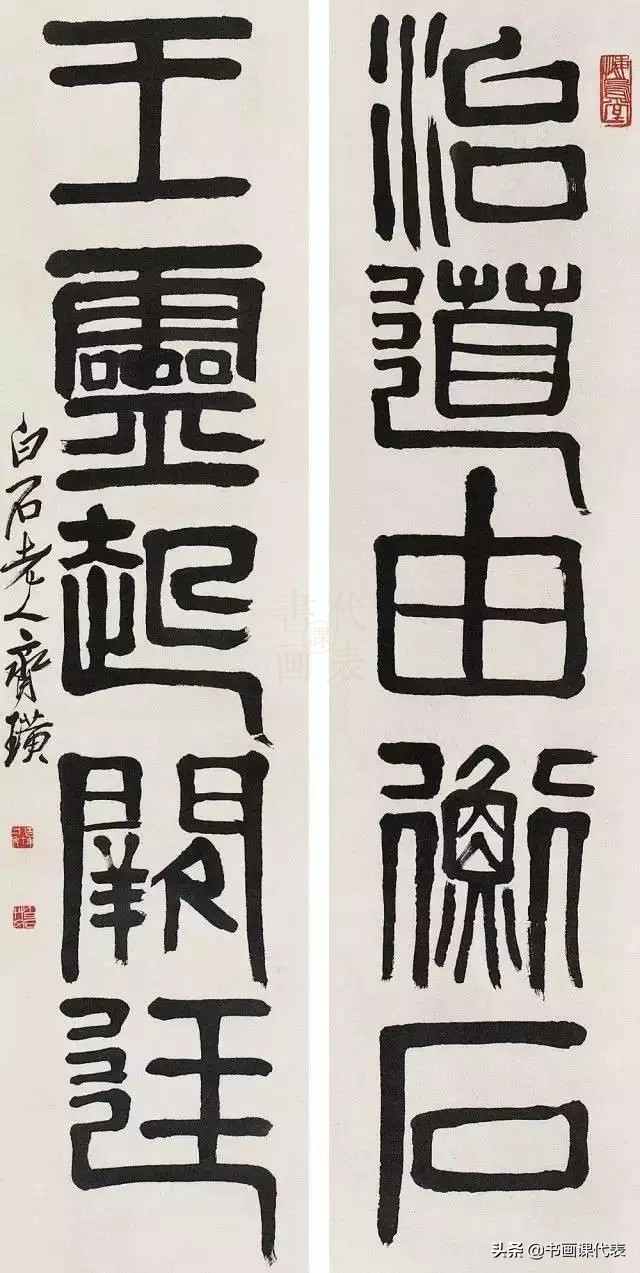 治道由衡石
王靈起闕廷
白石老人齊璜
悔烏堂
書畫課代表
头条 @书画课代表